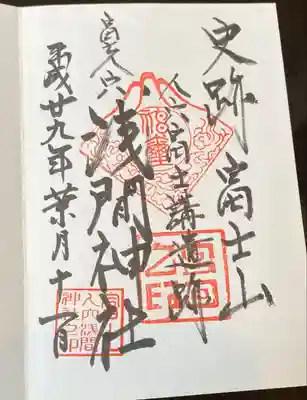 史跡富士山
人穴富士講遺跡
人穴
浅間神社
平成廿九年葉月十一日
人穴浅間
神社之印